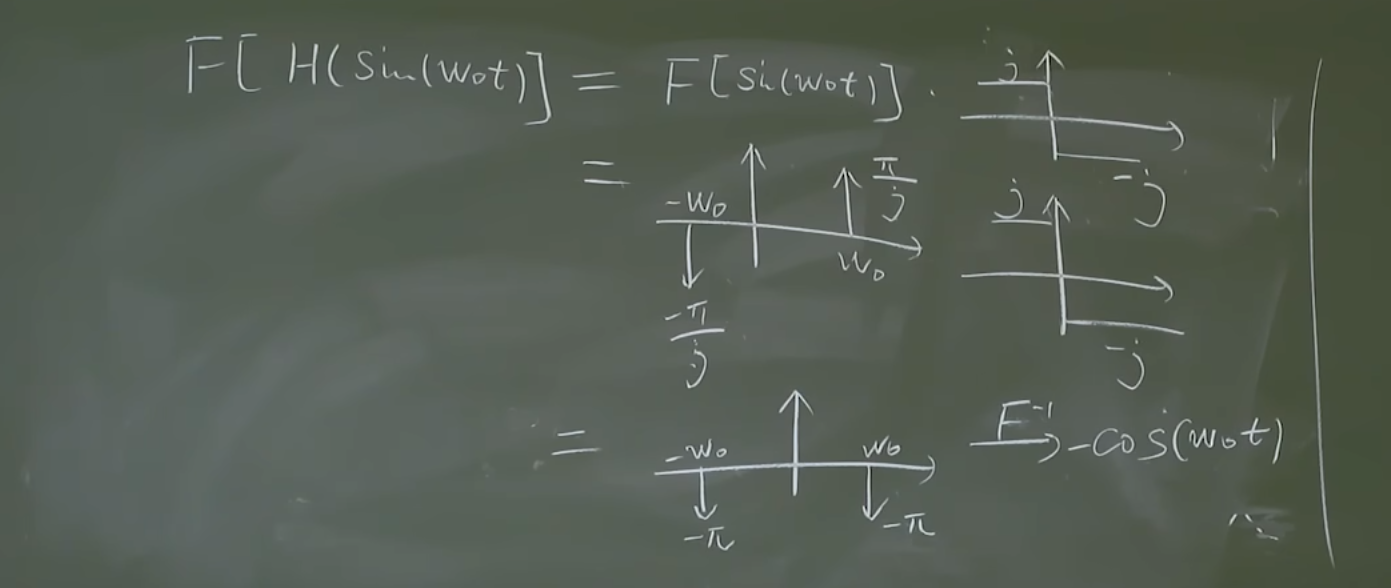 F[ H(sin(w₀t)] = F[sin(w₀t)] · j
-j
= -w₀ π/j j
w₀
-π/j -j
= -w₀ w₀ F⁻¹ → -cos(w₀t)
-π -π